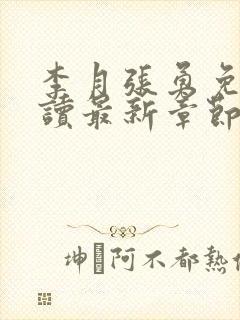 李月張勇免
讀最新章節
坤 阿不都熱